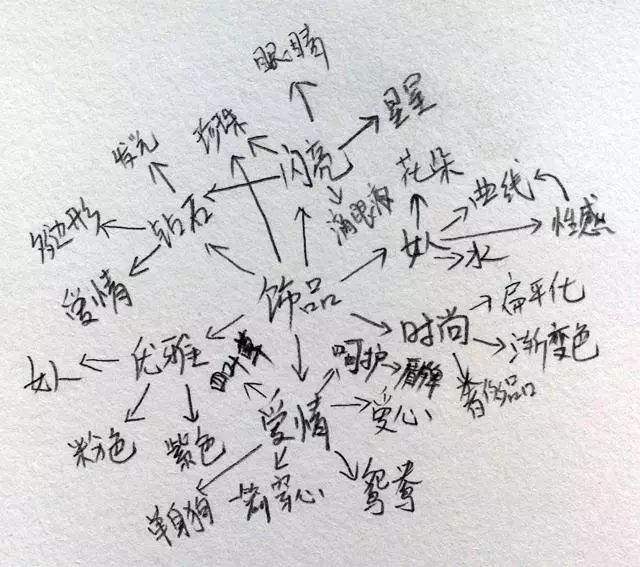 眼睛
星星
珍珠
发光
闪亮
花朵
曲线
滴眼液
多边形
钻石
性感
女人
水
爱情
饰品
扁平化
时尚
渐变色
女人
优雅
四叶草
呵护
爱心
奢侈品
粉色
紫色
爱情
单身狗
一箭穿心
鸳鸯